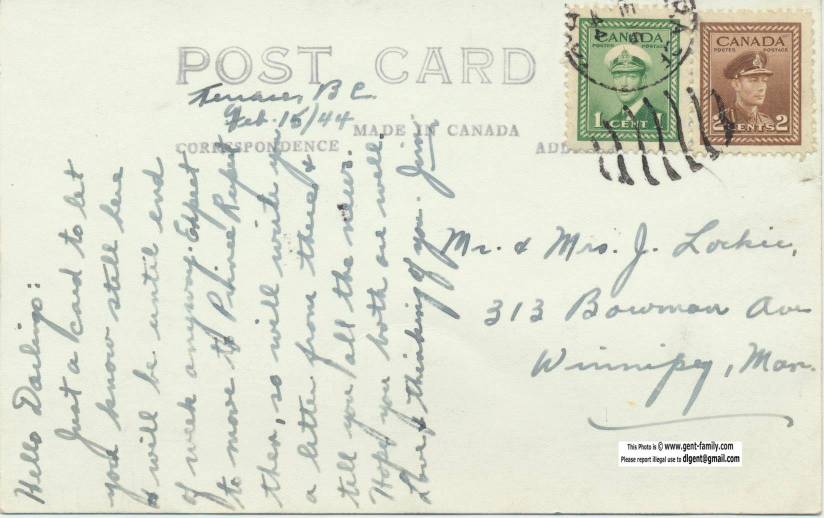 POST CARD
Terrace, B C.
Feb. 15/44
MADE IN CANADA
CORRESPONDENCE
Hello Darlings:
Just a card to let
you know still here
& will be until end
of week anyway. Expect
to move to Prince Rupert
then, so will write you
a letter from there &
tell you all the news.
Hope you both are well.
Love & thinking of you. Jim
Mr. & Mrs. J. Lockie,
313 Bowman Ave
Winnipeg, Man.
CANADA
POSTES POSTAGE
1 CENT 1
CANADA
POSTES POSTAGE
2 CENTS 2
This Photo is © www.gent-family.com
Please report illegal use to digent@gmail.com